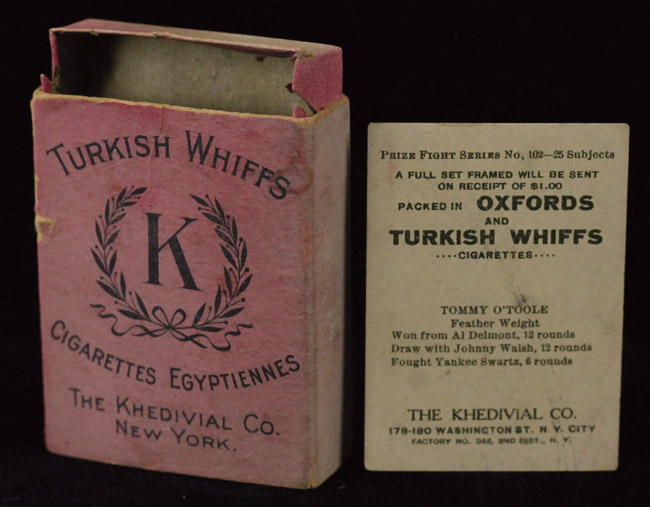 TURKISH WHIFFS
K
CIGARETTES EGYPTIENNES
THE KHEDIVIAL CO.
NEW YORK.
PRIZE FIGHT SERIES No, 102—25 Subjects
A FULL SET FRAMED WILL BE SENT
ON RECEIPT OF $1.00
PACKED IN OXFORDS
AND
TURKISH WHIFFS
····CIGARETTES····
TOMMY O'TOOLE
Feather Weight
Won from Al Delmont, 12 rounds
Draw with Johnny Walsh, 12 rounds
Fought Yankee Swartz, 6 rounds
THE KHEDIVIAL CO.
178-180 WASHINGTON ST. N. Y. CITY
FACTORY NO. 2ND DIST., N. Y.